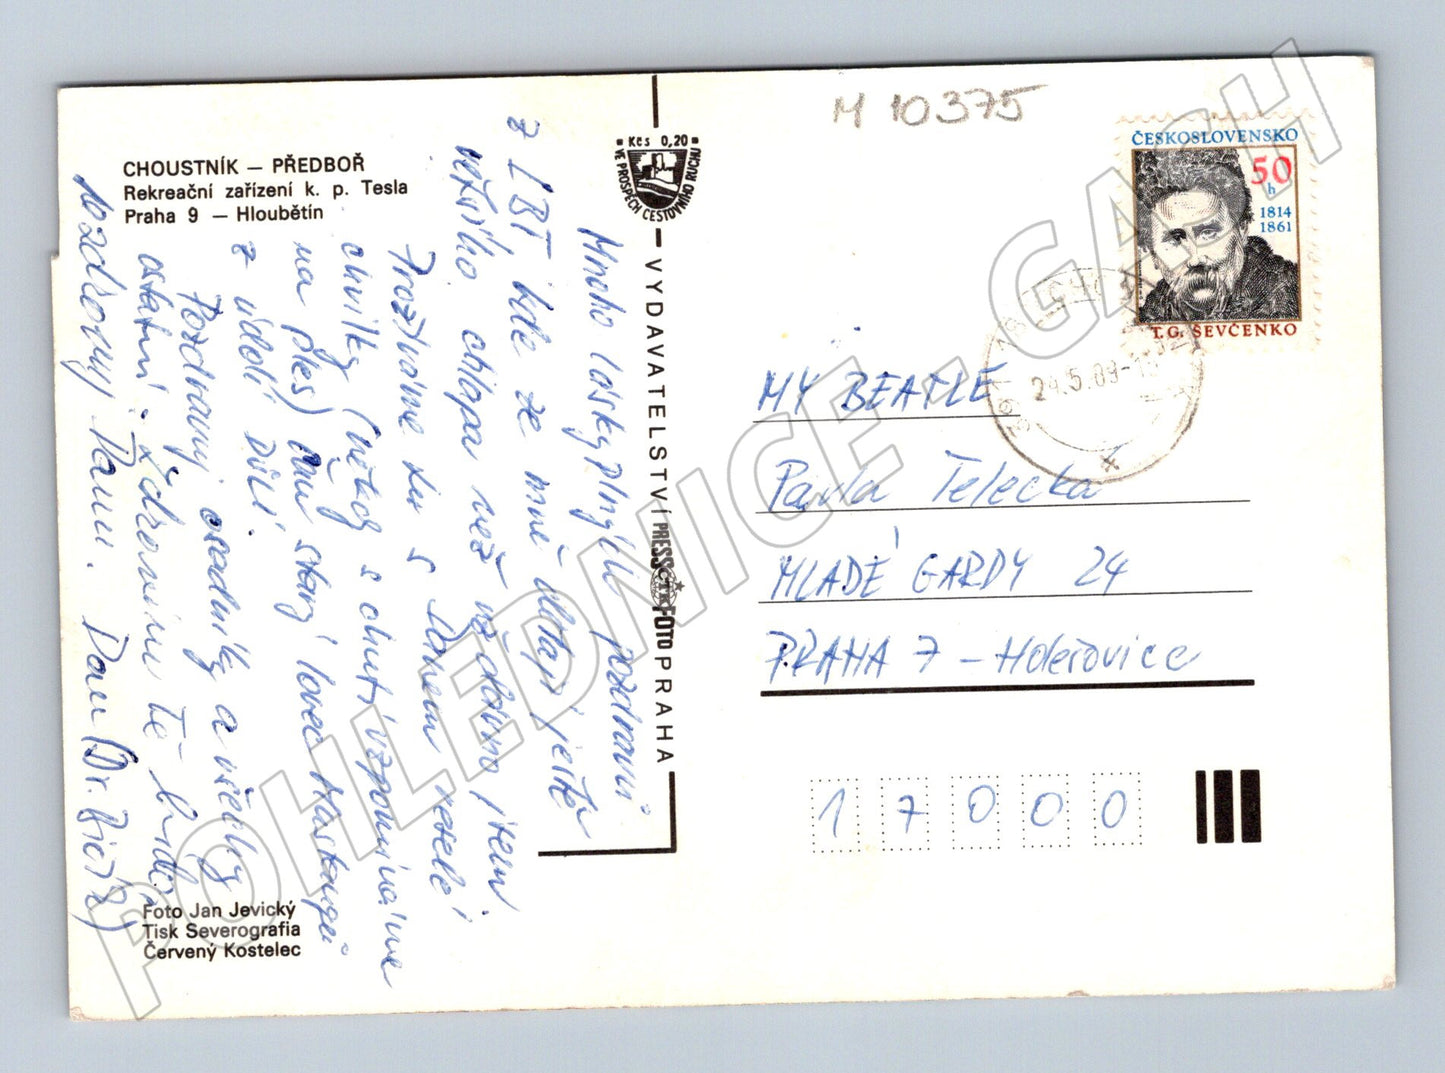 M 10375
CHOUSTNÍK – PŘEDBOŘ
Rekreační zařízení k. p. Tesla
Praha 9 – Hloubětín
Kčs 0,20
VE PROSPĚCH CESTOVNÍHO RUCHU
VYDAVATELSTVÍ PRESSFOTO PRAHA
ČTK
ČESKOSLOVENSKO
50
h
1814
1861
T.G. ŠEVČENKO
24.5.89-15
Mnoho láskyplných pozdravů
z LBT kde ze mně udělají ještě
většího chlapa než už dávno jsem
Prožíváme tu s Danem veselé
chvilky a chutí vzpomínáme
na ples) Čau starý lovec
z údolí DŮLÍ
Pozdravuj osadníky a všechny
ostatní. Zdravím tě
nozdrovný Dan.
MY BEATLE
Pavla Telecká
MLADÉ GARDY 24
PRAHA 7 – Holešovice
17000
Foto Jan Jevický
Tisk Severografia
Červený Kostelec
POHLEDNICE - GACH